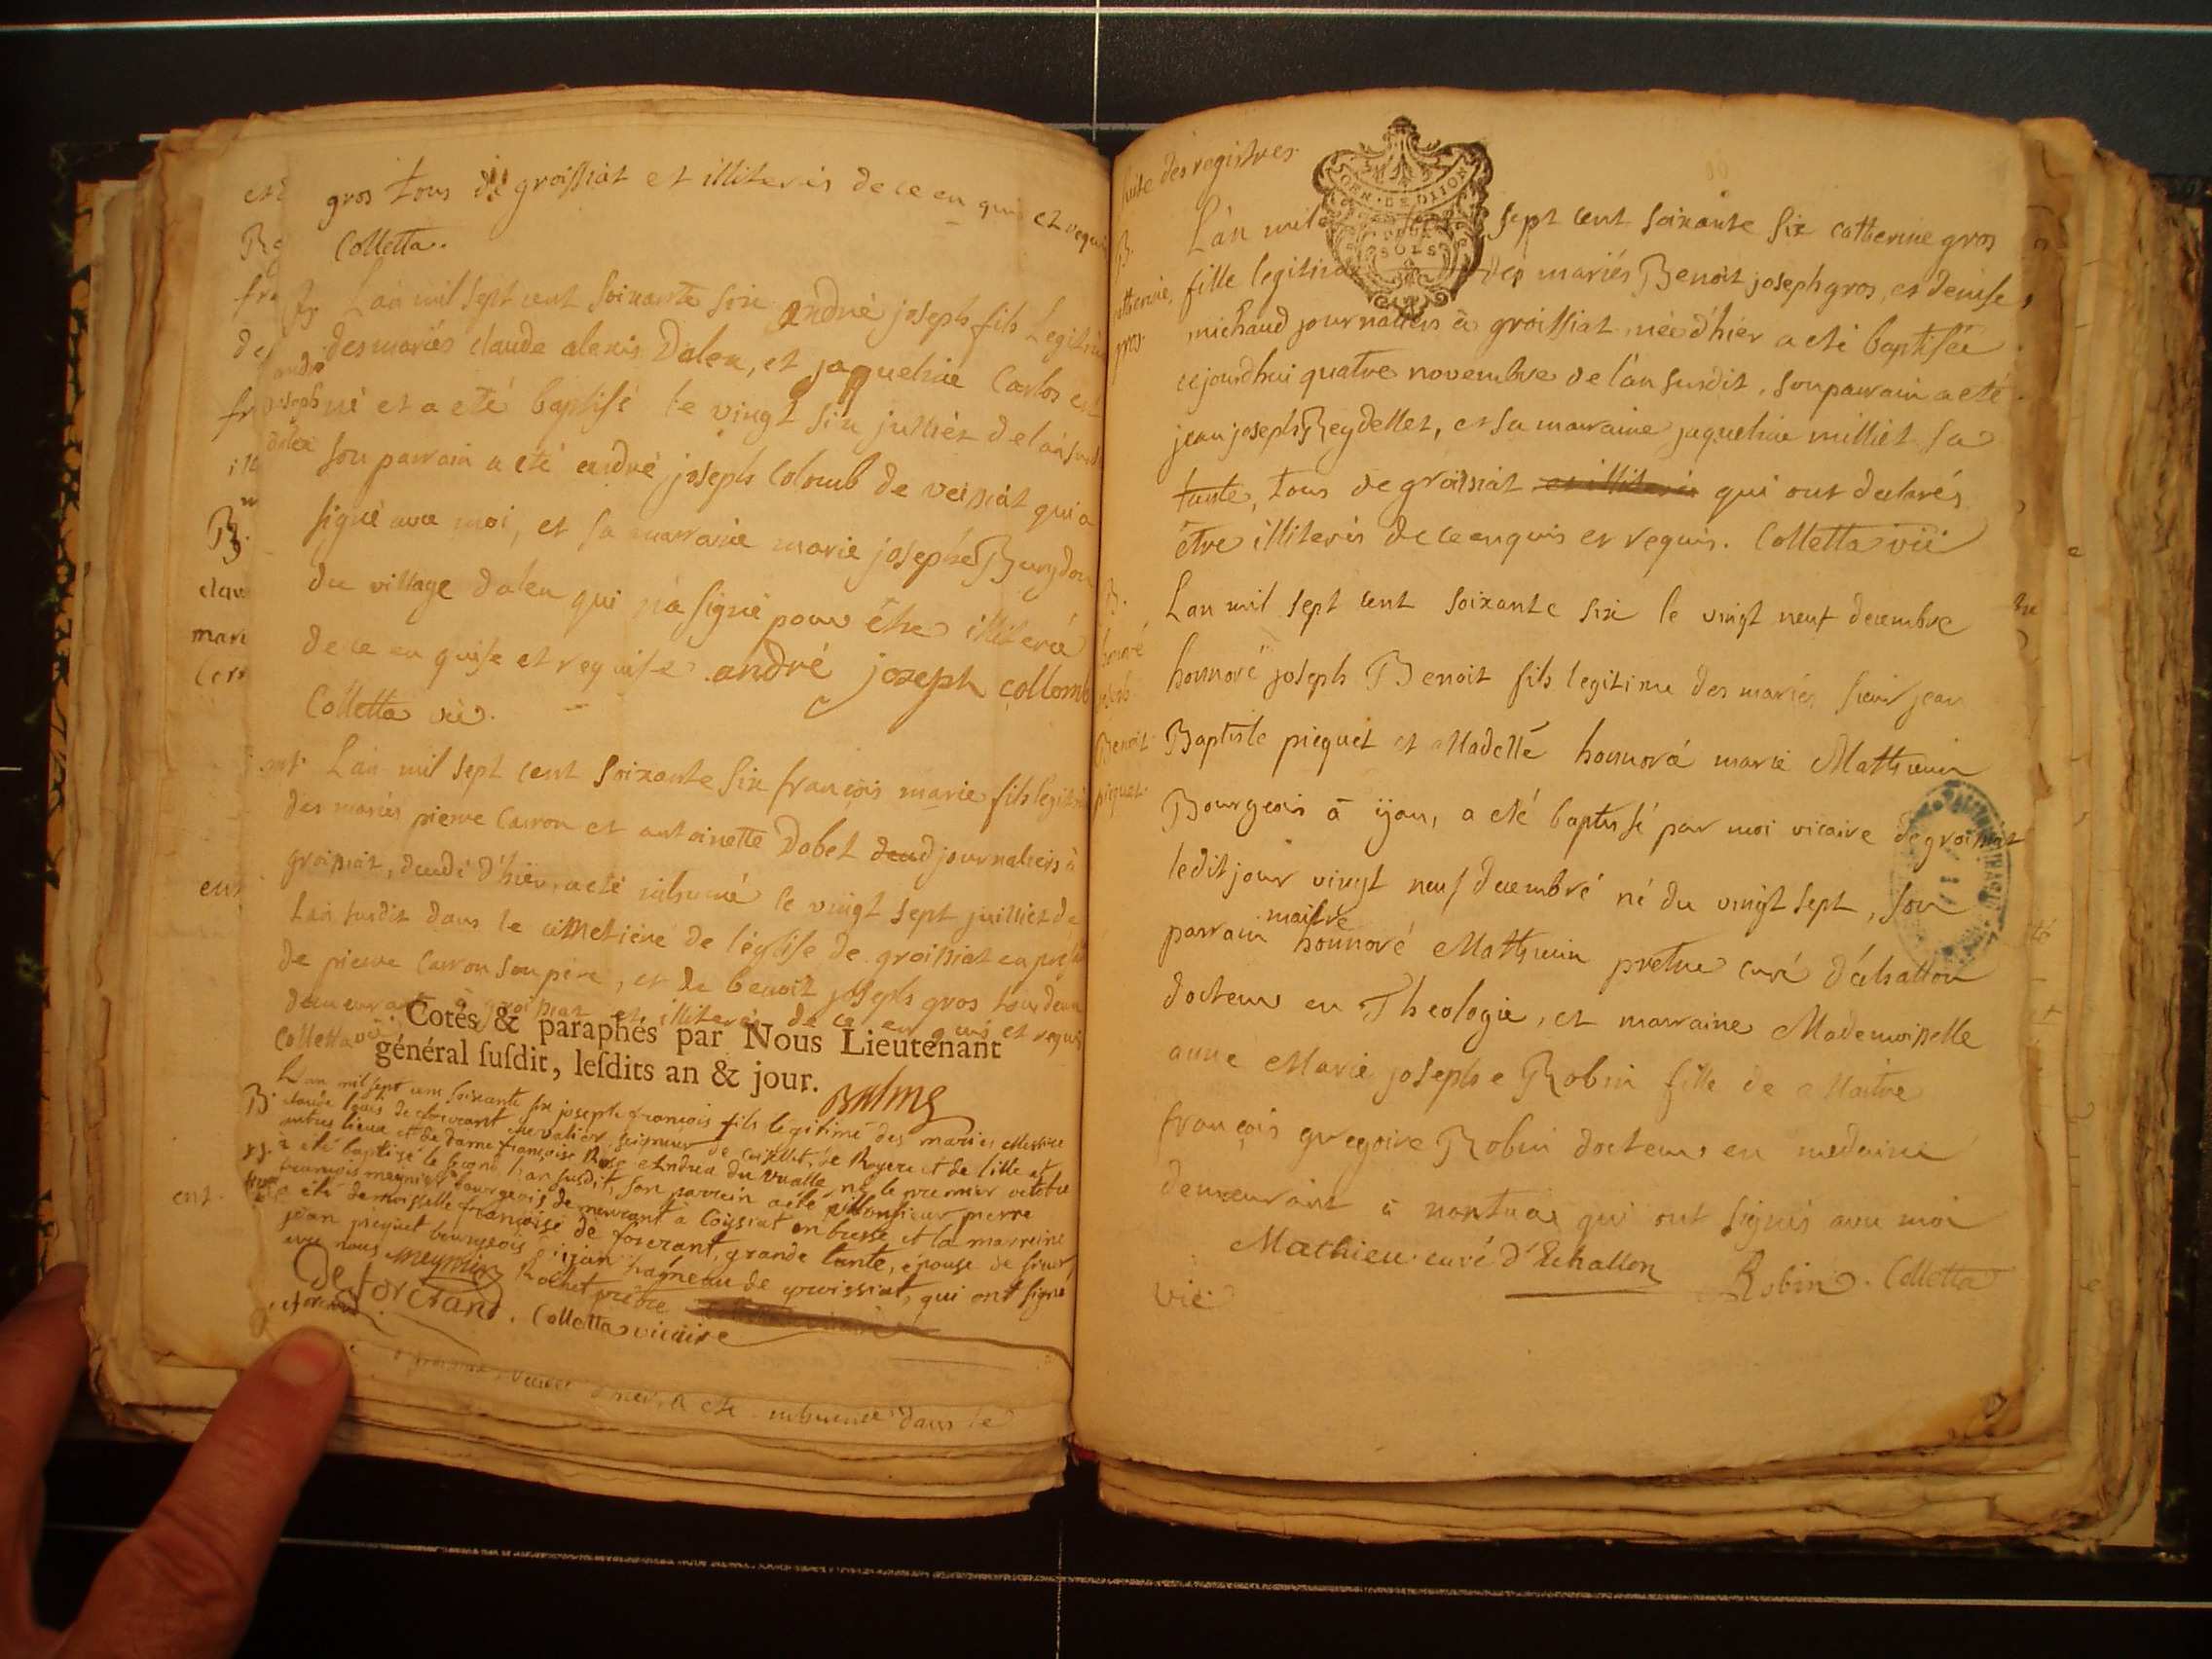 gros tous de groissiat et illiterés de ce en quis et requis
Colletta.
B. L'an mil sept cent soixante six andré joseph fils Legitime
des mariés claude alexis Dalex, et jaqueline Carlos est
né et a eté baptisé le vingt six julliet de l'an susdit
andré
joseph
dalex
son parrain a eté andré joseph Colomb de veisiat qui a
signé avec moi, et sa marraine marie josephe
du village dalex qui n'a signé pour être illiteré
de ce en quise et requise. andré joseph collomb
Colletta vic.
ent. L'an mil sept cent soixante six françois marie fils legitime
des mariés pierre Carron et antoinette Dobet journaliers à
groissiat, decedé d'hier, a eté inhumé le vingt sept juilliet de
L'an susdit dans le cimetiere de l'église de groissiat en presence
de pierre Carron son pere, et de benoit joseph gros tous deux
demeurant à groissiat et illiterés de ce en quis et requis
Colletta vic.
Cotés & paraphés par Nous Lieutenant
général susdit, lesdits an & jour.
B. L'an mil sept cent soixante six joseph françois fils legitime des mariés Messire
claude louis de forcrant chevalier, seigneur de coiselet, de Rogere et de lille et
autres lieux et de dame françoise Rose Andrea du Vualle, né le premier octobre
a été baptisé le second l'an susdit, son parrein a été Monsieur pierre
françois meynier bourgeois, demeurant à Coissiat en bresse et la marreine
a été demoisselle françoise de forcrant, grande tante, épouse de sieur
jean piequet bourgeois à ijan hameau de groissiat, qui ont signé
avec nous meynier Rochet prêtre
De forcrand. Colletta vicaire
hier, a eté inhumée dans le
suite des registres.
GEN. DE DIJON
SOLS
B. L'an mil sept cent soixante six catherine gros
catherine
gros.
fille legitime des mariés Benoit joseph gros, et denise
michaud journaliers à groissiat née d'hier a eté baptisée
cejourdhui quatre novembre de l'an susdit, son parrain a eté
jean joseph Reydellet, et sa marraine jaqueline milliet sa
tante, tous de groissiat et illiterés qui ont declarés
être illiterés de ce enquis et requis. Colletta vic
B. L'an mil sept cent soixante six le vingt neuf decembre
honoré
joseph
Benoit
piquet
honnoré joseph Benoit fils legitime des mariés sieur jean
Baptiste piequet et Madelle honnoré marie Mathieu
Bourgeois à ijan, a eté baptissé par moi vicaire de groissiat
ledit jour vingt neuf decembre né du vingt sept, son
parrain maitre honnoré Mathieu pretre curé d'echallon
docteur en Theologie, et marraine Mademoiselle
anne Marie josephe Robin fille de Maitre
françois gregoire Robin docteur en medecine
demeurant à nantua qui ont signés avec moi
Mathieu curé d'Echallon Robin. Colletta
vic.